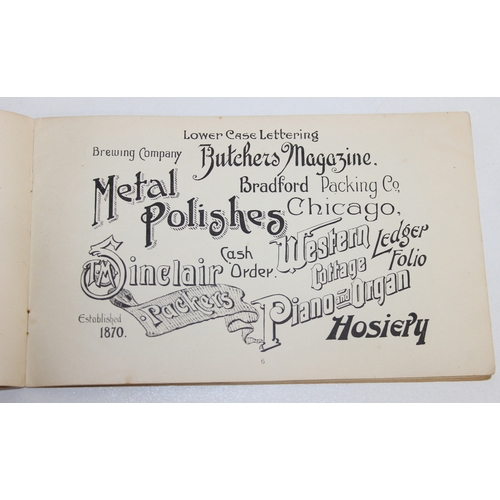 Lower Case Lettering
Brewing Company
Butchers Magazine.
Metal
Polishes
Bradford Packing Co.
Chicago,
T.M. Sinclair
Packers
Cash
Order.
Western
Cottage
Piano and Organ
Ledger
Folio
Established
1870.
Hosiery
6